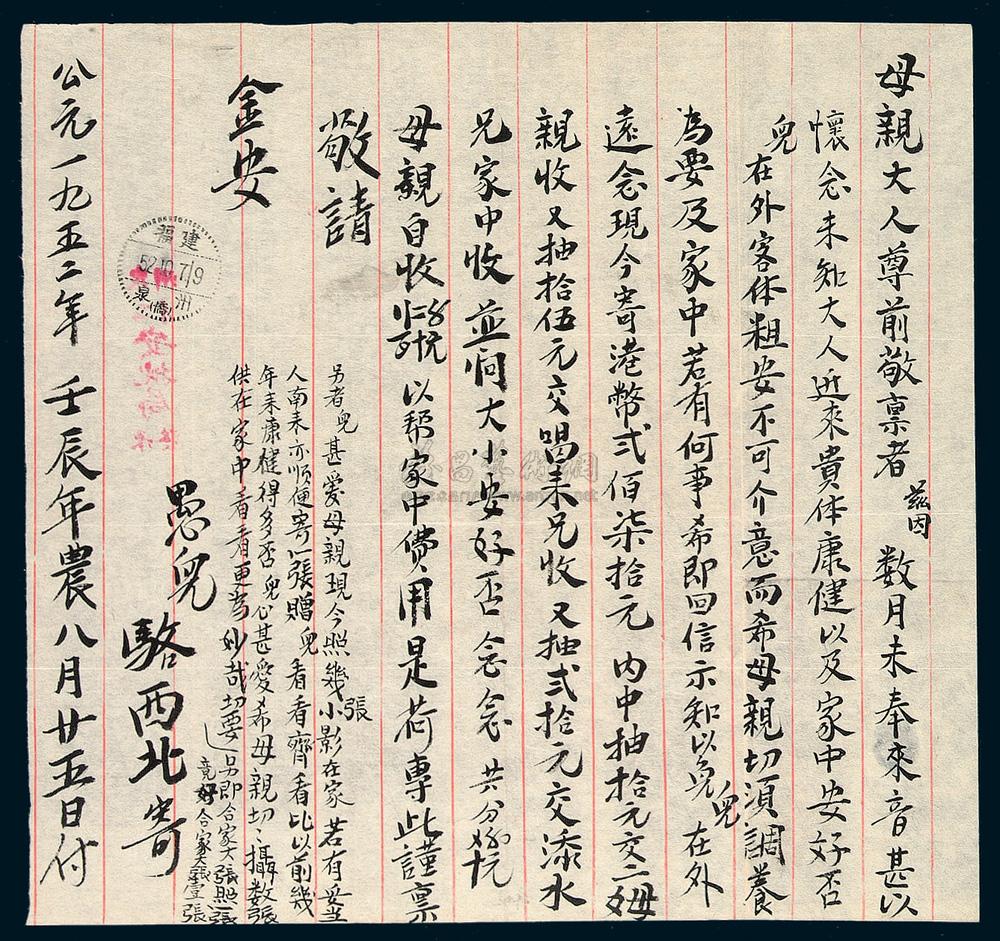 母親大人尊前敬禀者茲因數月未奉來音甚以
懷念未知大人近來貴体康健以及家中安好否
兒在外客体粗安不可介意而希母親切須調養
為要及家中若有何事希即回信示知以免兒在外
遠念現今寄港幣弍佰柒拾元內中抽拾元交二姆
親收又抽拾伍元交唱来兄收又抽弍拾元交添水
兄家中收並洞大小安好否念念共分
母親自收以帮家中費用是荷專此謹禀
敬請
金安
另者兒甚愛母親現今照幾張小影在家若有妥当
人南来亦順便寄一張贈兒看看齊看比以前幾
年来康健得多否兒心甚愛希母親切切攝数張
供在家中看看更為妙哉切要
另即合家大張照一張
竟好合家大張壹張
愚兒駱西北寄
公元一九五二年壬辰年農八月廿五日付
福建
52.10.7/9
泉(僑)州